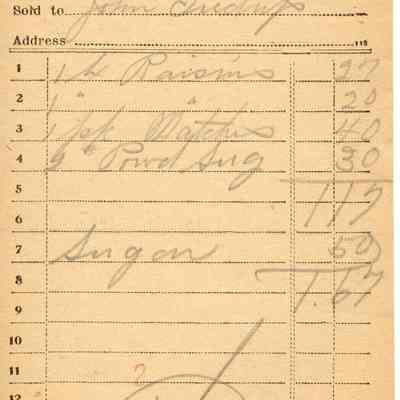 Sold to John
Address 118
1 1 lb Raisins 27
2 1 " " 20
3 1 pk Matches 40
4 9" Powd Sug 30
5 117
6
7 Sugar 50
8 1.67
9
10
11 ?
12